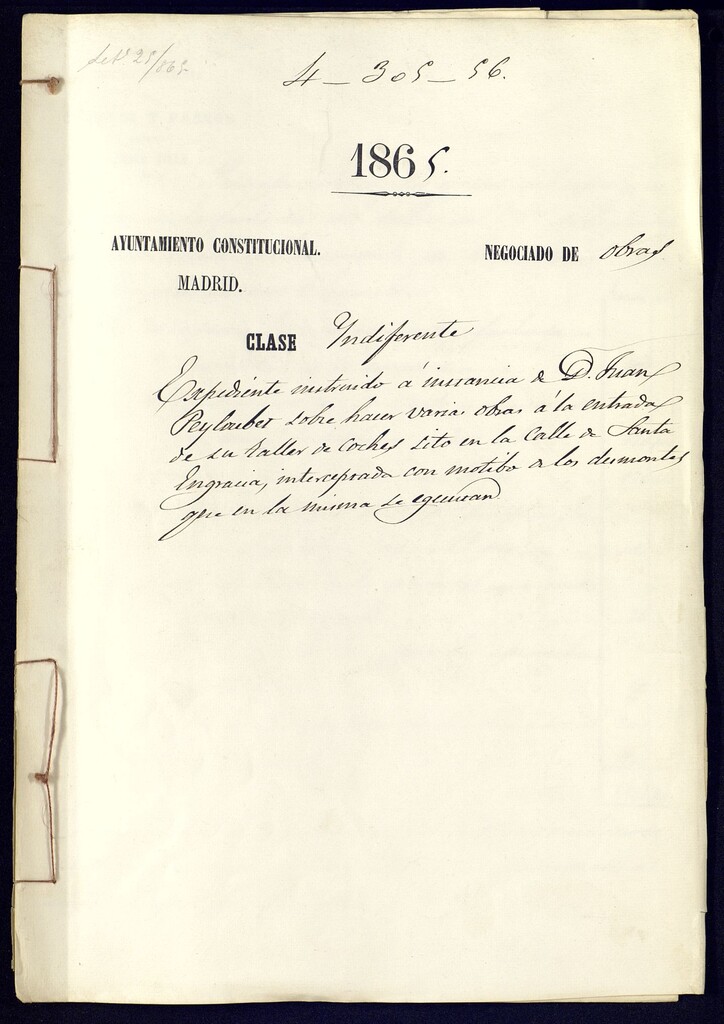 4 - 305 - 56.
1865.
AYUNTAMIENTO CONSTITUCIONAL.
MADRID.
NEGOCIADO DE obras
CLASE Yndiferente
Expediente instruido á instancia de D. Juan
Peyloubet sobre hacer varias obras á la entrada
de su taller de coches sito en la Calle de Santa
Engracia, interceptada con motibo de los desmontes
que en la misma se egecutan